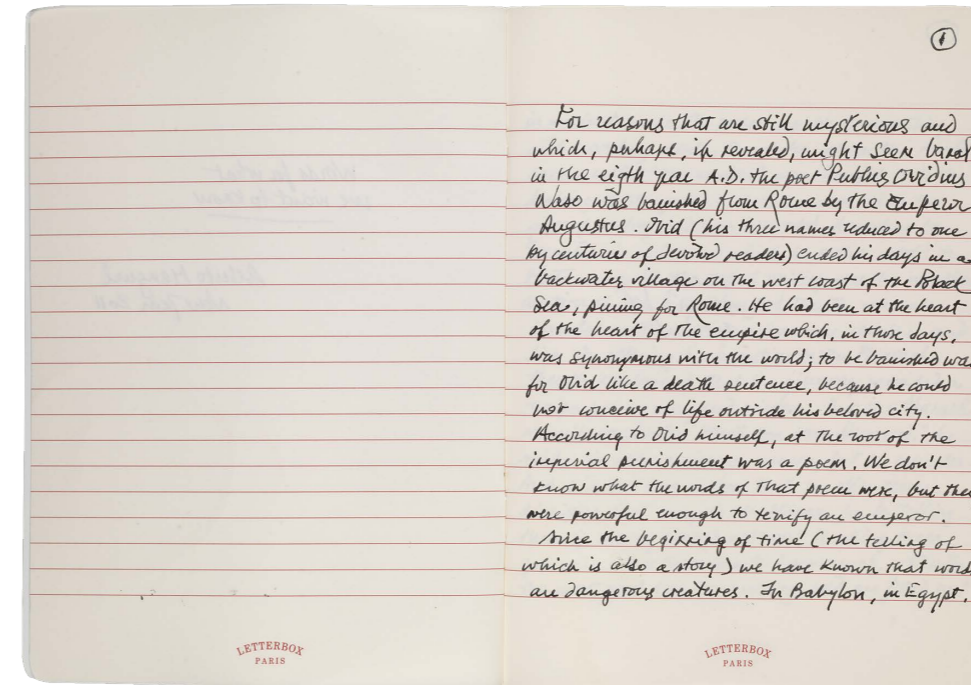 1
For reasons that are still mysterious and
which, perhaps, if revealed, might seem banal
in the eigth year A.D. the poet Publius Ovidius
Naso was banished from Rome by the Emperor
Augustus. Ovid (his three names reduced to one
by centuries of devoted readers) ended his days in a
backwater village on the west coast of the Black
Sea, pining for Rome. He had been at the heart
of the heart of the empire which, in those days,
was synonymous with the world; to be banished was
for Ovid like a death sentence, because he could
not conceive of life outside his beloved city.
According to Ovid himself, at the root of the
imperial punishment was a poem. We don't
know what the words of that poem were, but they
were powerful enough to terrify an emperor.
Since the beginning of time (the telling of
which is also a story) we have known that words
are dangerous creatures. In Babylon, in Egypt,
LETTERBOX
PARIS
LETTERBOX
PARIS